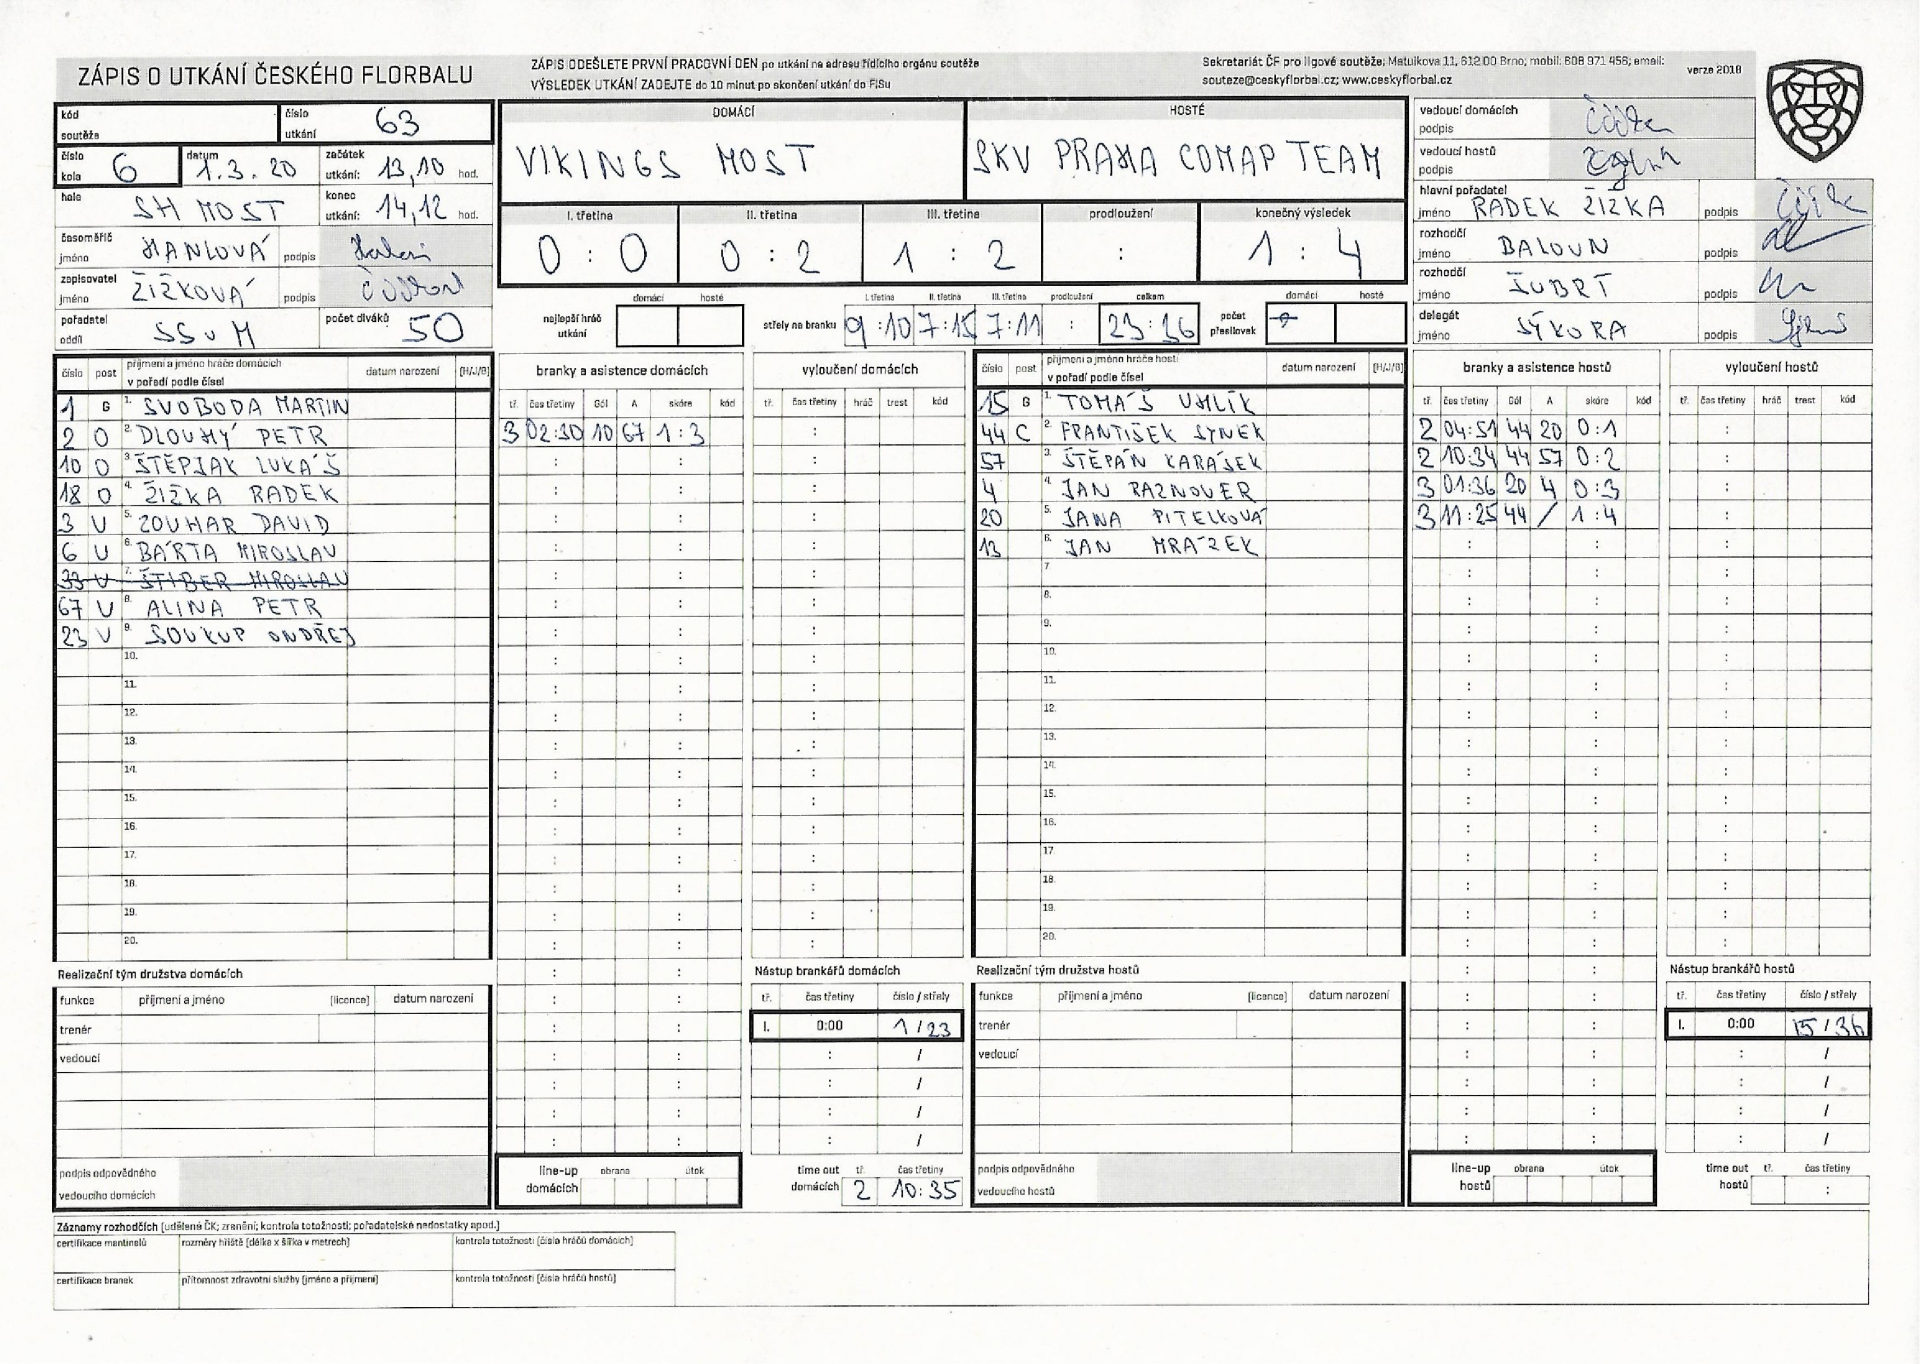 ZÁPIS O UTKÁNÍ ČESKÉHO FLORBALU
ZÁPIS ODEŠLETE PRVNÍ PRACOVNÍ DEN po utkání na adresu řídícího orgánu soutěže
VÝSLEDEK UTKÁNÍ ZADEJTE do 10 minut po skončení utkání do FISu
Sekretariát ČF pro ligové soutěže; Matulkova 11, 612 00 Brno; mobil: 608 971 456; email:
souteze@ceskyflorbal.cz; www.ceskyflorbal.cz
verze 2018
kód soutěže
číslo utkání 63
číslo kola 6
datum 1.3.20
začátek utkání: 13,10 hod.
hala SH MOST
konec utkání: 14,12 hod.
časoměřič jméno HANLOVÁ podpis
zapisovatel jméno ŽIŽKOVÁ podpis
pořadatel oddíl SSVM
počet diváků 50
DOMÁCÍ
VIKINGS MOST
HOSTÉ
SKV PRAHA COMAP TEAM
I. třetina II. třetina III. třetina prodloužení konečný výsledek
0 : 0 0 : 2 1 : 2 : 1 : 4
domácí hosté
nejlepší hráč utkání
I. třetina II. třetina III. třetina prodloužení celkem
střely na branku 9:10 7:15 7:11 : 23:36
domácí hosté
počet přesilovek
vedoucí domácích podpis
vedoucí hostů podpis
hlavní pořadatel jméno RADEK ŽIŽKA podpis
rozhodčí jméno BALOUN podpis
rozhodčí jméno ŠUBRT podpis
delegát jméno SÝKORA podpis
číslo post příjmení a jméno hráče domácích v pořadí podle čísel datum narození (H/J/B)
1 G 1. SVOBODA MARTIN
2 O 2. DLOUHÝ PETR
10 O 3. ŠTĚPJAK LUKÁŠ
18 O 4. ŽIŽKA RADEK
3 V 5. ZOUHAR DAVID
6 U 6. BÁRTA MIROSLAV
33 V 7. ŠTIBER MIROSLAV
67 V 8. ALINA PETR
23 V 9. SOUKUP ONDŘEJ
10.
11.
12.
13.
14.
15.
16.
17.
18.
19.
20.
branky a asistence domácích
tř. čas třetiny Gól A skóre kód
3 02:30 10 67 1:3
vyloučení domácích
tř. čas třetiny hráč trest kód
číslo post příjmení a jméno hráče hostí v pořadí podle čísel datum narození (H/J/B)
15 G 1. TOMÁŠ UHLÍK
44 C 2. FRANTIŠEK SYNEK
57 3. ŠTĚPÁN KARÁSEK
4 4. JAN RAZNOVER
20 5. JANA PITELKOVÁ
13 6. JAN MRÁZEK
7.
8.
9.
10.
11.
12.
13.
14.
15.
16.
17.
18.
19.
20.
branky a asistence hostů
tř. čas třetiny Gól A skóre kód
2 04:51 44 20 0:1
2 10:34 44 57 0:2
3 01:36 20 4 0:3
3 11:25 44 / 1:4
vyloučení hostů
tř. čas třetiny hráč trest kód
Realizační tým družstva domácích
funkce příjmení a jméno (licence) datum narození
trenér
vedoucí
podpis odpovědného vedoucího domácích
line-up domácích obrana útok
Nástup brankářů domácích
tř. čas třetiny číslo / střely
I. 0:00 1 / 23
time out domácích tř. čas třetiny
2 10:35
Realizační tým družstva hostů
funkce příjmení a jméno (licence) datum narození
trenér
vedoucí
podpis odpovědného vedoucího hostů
line-up hostů obrana útok
Nástup brankářů hostů
tř. čas třetiny číslo / střely
I. 0:00 15 / 36
time out hostů tř. čas třetiny
:
Záznamy rozhodčích (udělené ČK; zranění; kontrola totožnosti; pořadatelské nedostatky apod.)
certifikace mantinelů rozměry hřiště (délka x šířka v metrech) kontrola totožnosti (čísla hráčů domácích)
certifikace branek přítomnost zdravotní služby (jméno a příjmení) kontrola totožnosti (čísla hráčů hostů)